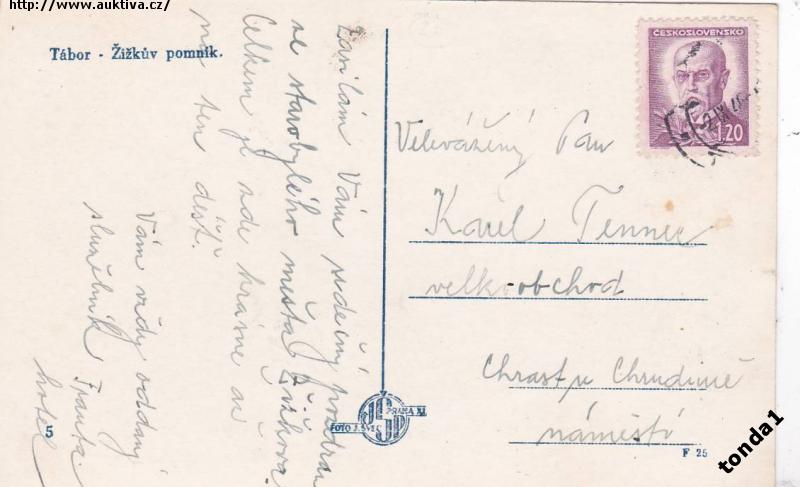 http://www.auktiva.cz/
Tábor - Žižkův pomník.
ČESKOSLOVENSKO
1.20
Zasílám Vám srdečný pozdrav
ze starobylého města Žižkova.
Celkem je zde krásně až
na ten déšť.
Vám vždy oddaný
služebník Franta.
hotel
Velevážený Pan
Karel Tennec
velkoobchod
Chrast u Chrudimě
náměstí
JSP
PRAHA XI.
FOTO J. ŠVEC
5
F 25
tonda1